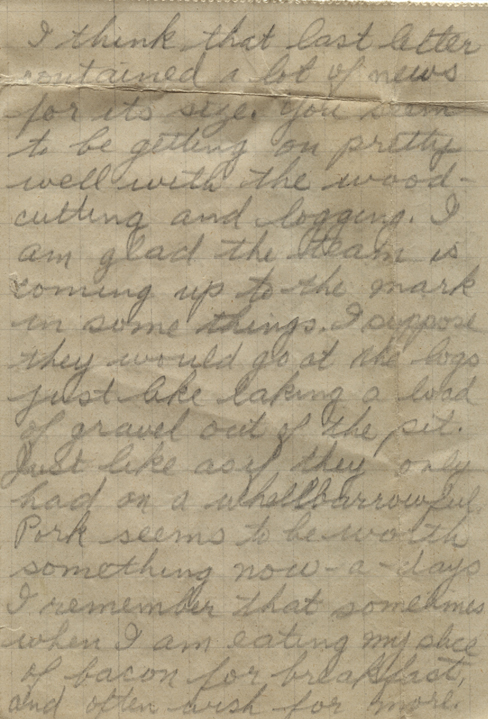 I think that last letter
contained a lot of news
for its size. You seem
to be getting on pretty
well with the wood-
cutting and logging. I
am glad the team is
coming up to the mark
in some things. I suppose
they would go at the logs
just like taking a load
of gravel out of the pit.
Just like as if they only
had on a whellbarrowful.
Pork seems to be worth
something now-a-days
I remember that sometimes
when I am eating my slice
of bacon for breakfast,
and often wish for more.